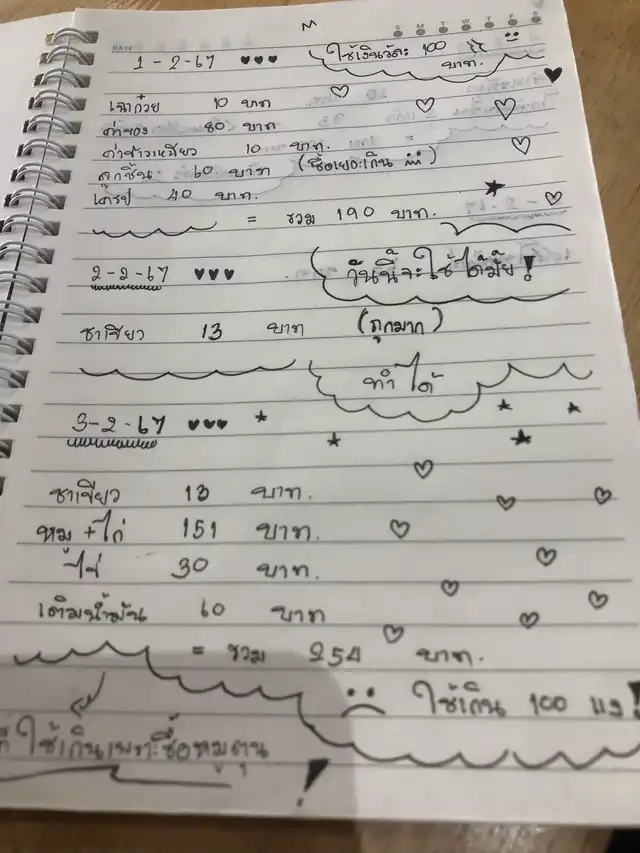 M
DATE S M T W T F S
1-2-67 ใช้เงินวันละ 100
บาท.
เฉาก๋วย 10 บาท
ค่าของ 80 บาท
ค่าข้าวเหนียว 10 บาท.
ลูกชิ้น 60 บาท (ซื้อเยอะเกิน)
เครป 40 บาท.
= รวม 190 บาท.
2-2-67 วันนี้จะใช้ได้มั้ย!
ชาเขียว 13 บาท (ถูกมาก)
ทำได้
3-2-67
ชาเขียว 13 บาท.
หมู+ไก่ 151 บาท.
ไข่ 30 บาท.
เติมน้ำมัน 60 บาท
= รวม 254 บาท.
ใช้เกิน 100 แรง!
ที่ใช้เกินเพราะซื้อหมูตุน!